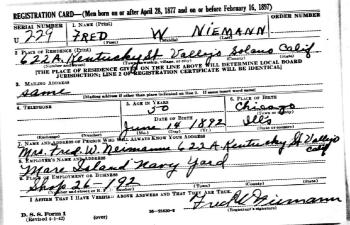 REGISTRATION CARD—(Men born on or after April 28, 1877 and on or before February 16, 1897)
SERIAL NUMBER 1. NAME (Print) ORDER NUMBER
U 229 FRED W NIEMANN
(First) (Middle) (Last)
2. PLACE OF RESIDENCE (Print)
622A. Kentucky St Vallejo Solano Calif.
[THE PLACE OF RESIDENCE GIVEN ON THE LINE ABOVE WILL DETERMINE LOCAL BOARD
JURISDICTION; LINE 2 OF REGISTRATION CERTIFICATE WILL BE IDENTICAL]
3. MAILING ADDRESS
same
[Mailing address if other than place indicated on line 2. If same insert word same]
4. TELEPHONE 5. AGE IN YEARS 6. PLACE OF BIRTH
50 Chicago
DATE OF BIRTH
June 14 1892 Ills
7. NAME AND ADDRESS OF PERSON WHO WILL ALWAYS KNOW YOUR ADDRESS
Mrs. Fred W. Neimann 622 A Kentucky St Vallejo Calif
8. EMPLOYER'S NAME AND ADDRESS
Mare Island Navy Yard
9. PLACE OF EMPLOYMENT OR BUSINESS
Shop 26-192
I AFFIRM THAT I HAVE VERIFIED ABOVE ANSWERS AND THAT THEY ARE TRUE.
Fred W Niemann
D. S. S. Form 1
(Revised 4-1-42) (over) (Registrant's signature)